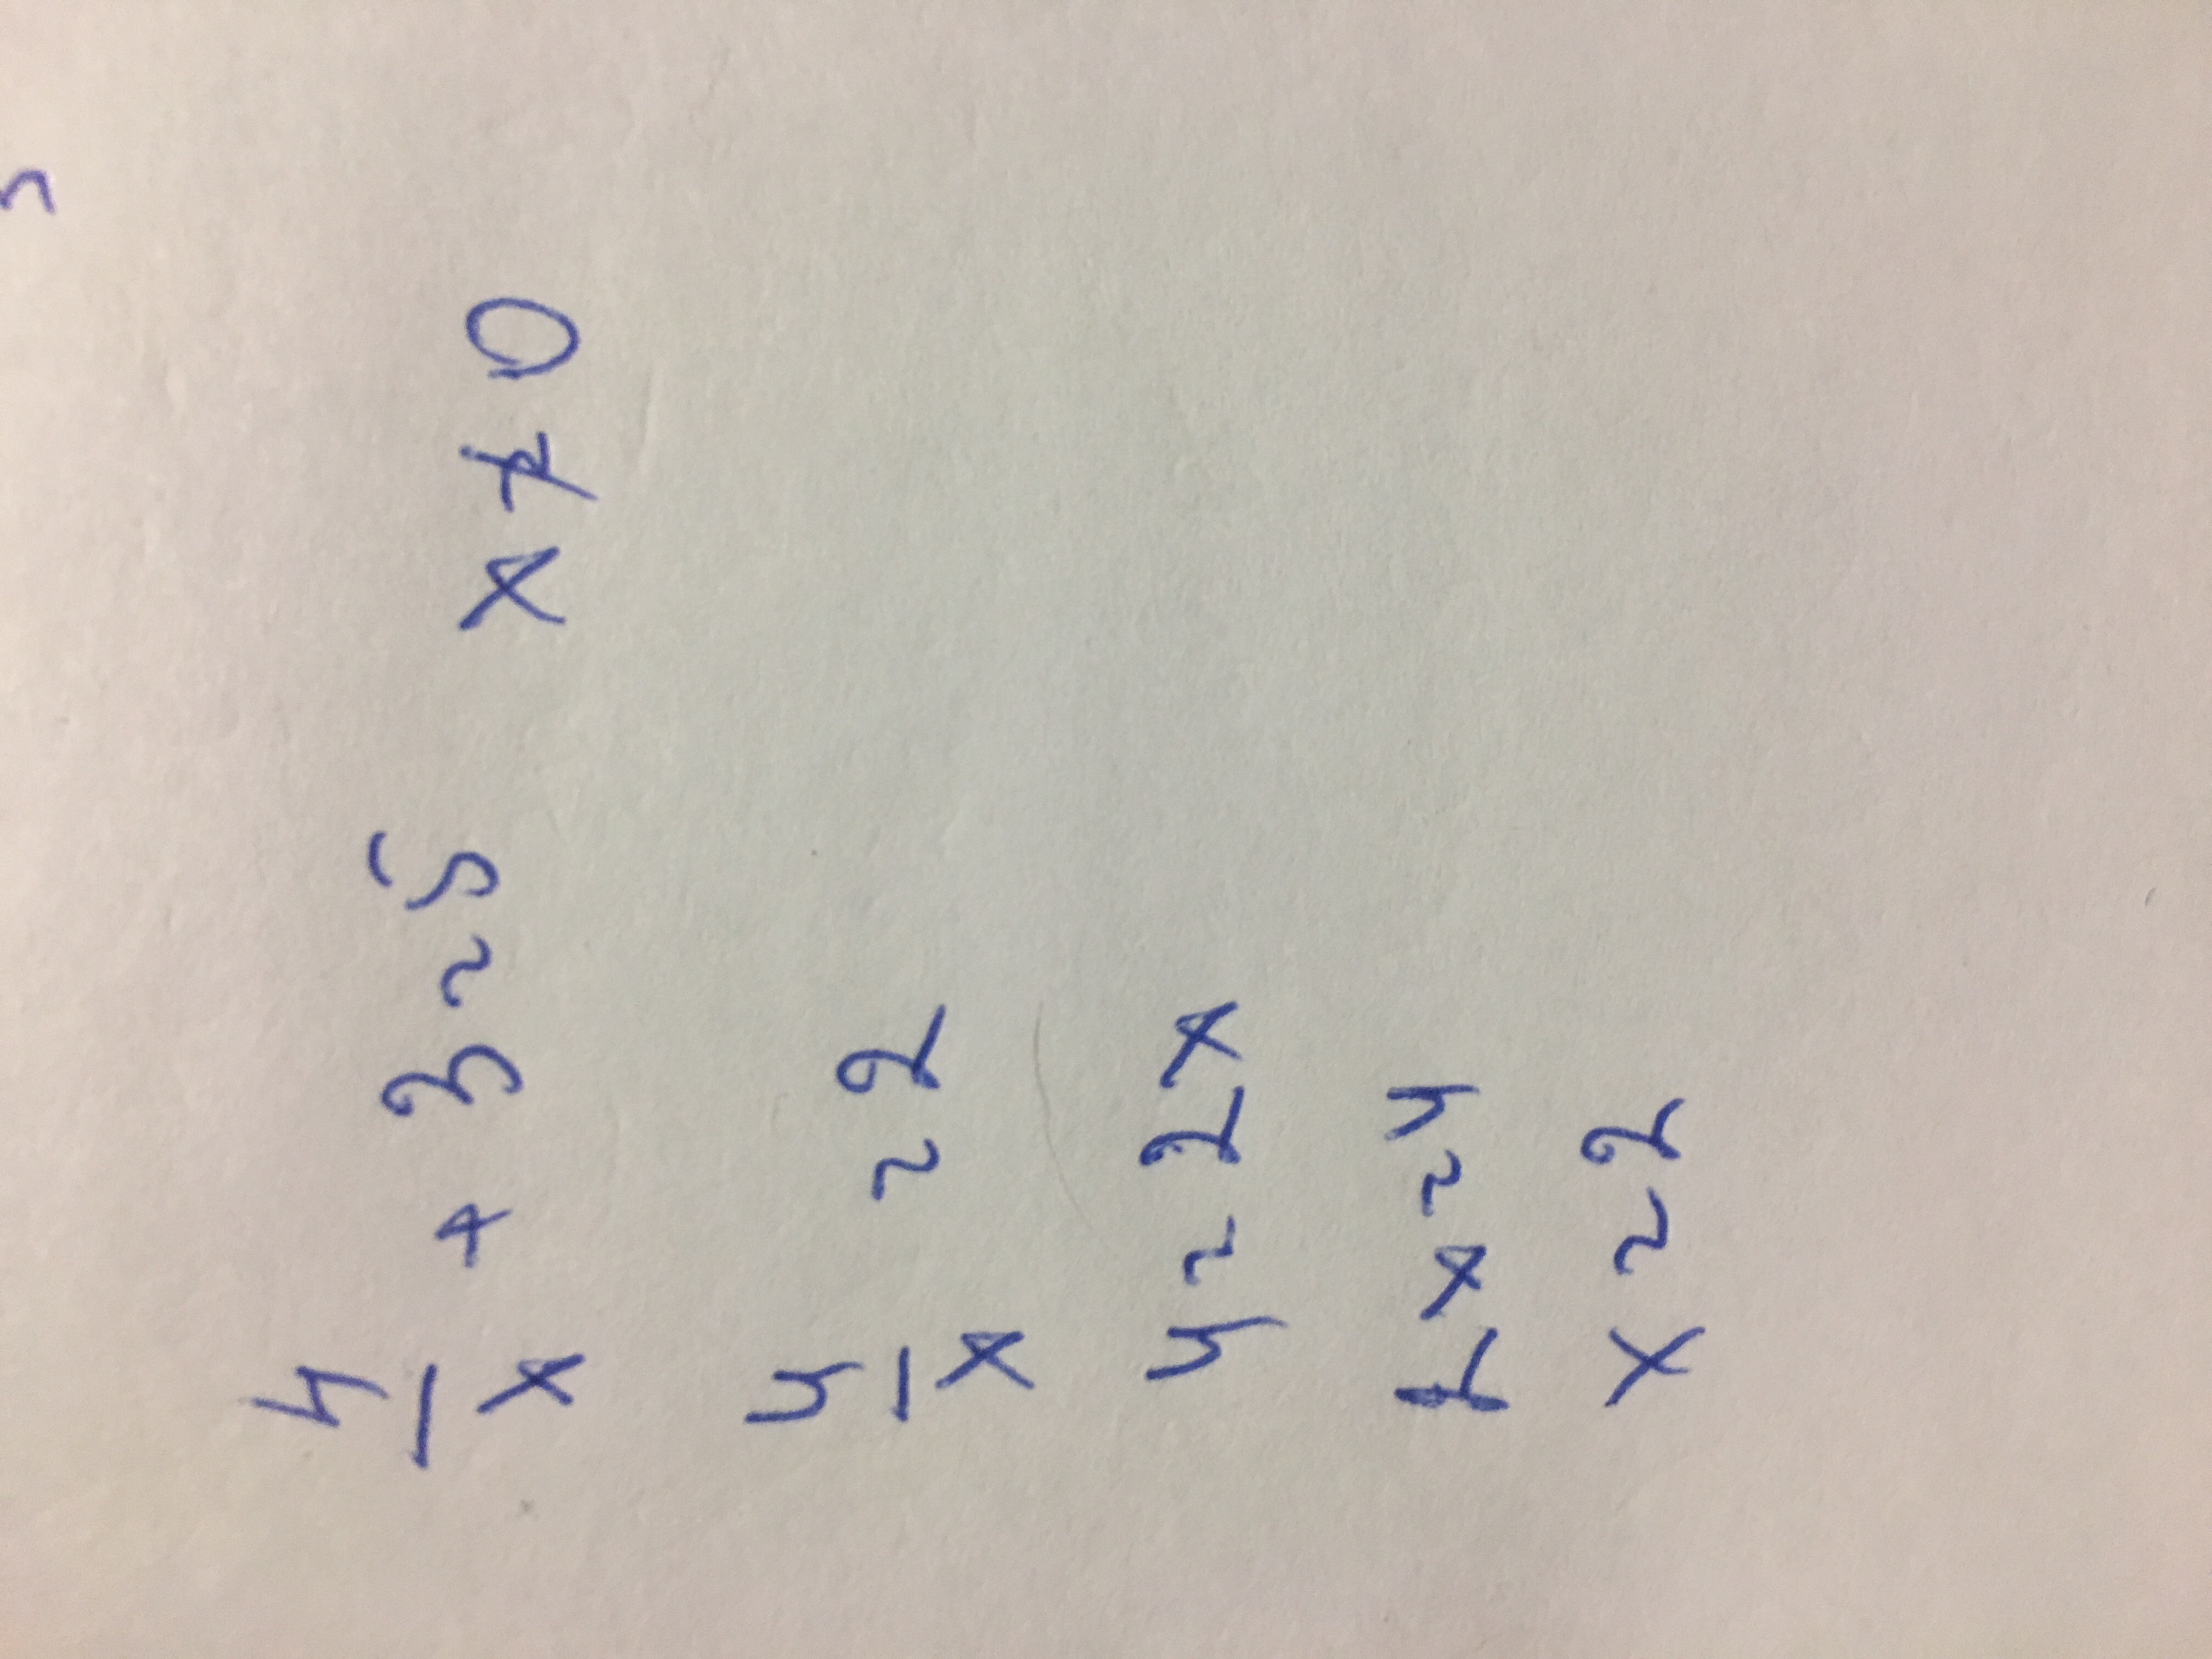 4/x + 3 = 5 x ≠ 0
4/x = 2
4 = 2x
2x = 4
x = 2